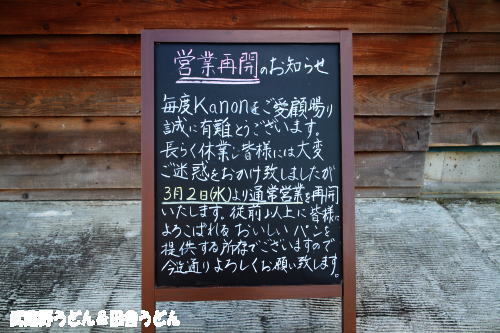 営業再開のお知らせ
毎度Kanonをご愛顧賜り
誠に有難とうございます。
長らく休業し皆様には大変
ご迷惑をおかけ致しましたが
3月2日(水)より通常営業を再開
いたします。従前以上に皆様に
よろこばれるおいしいパンを
提供する所存でございますので
今迄通りよろしくお願い致します。
武蔵野うどん&田舎うどん